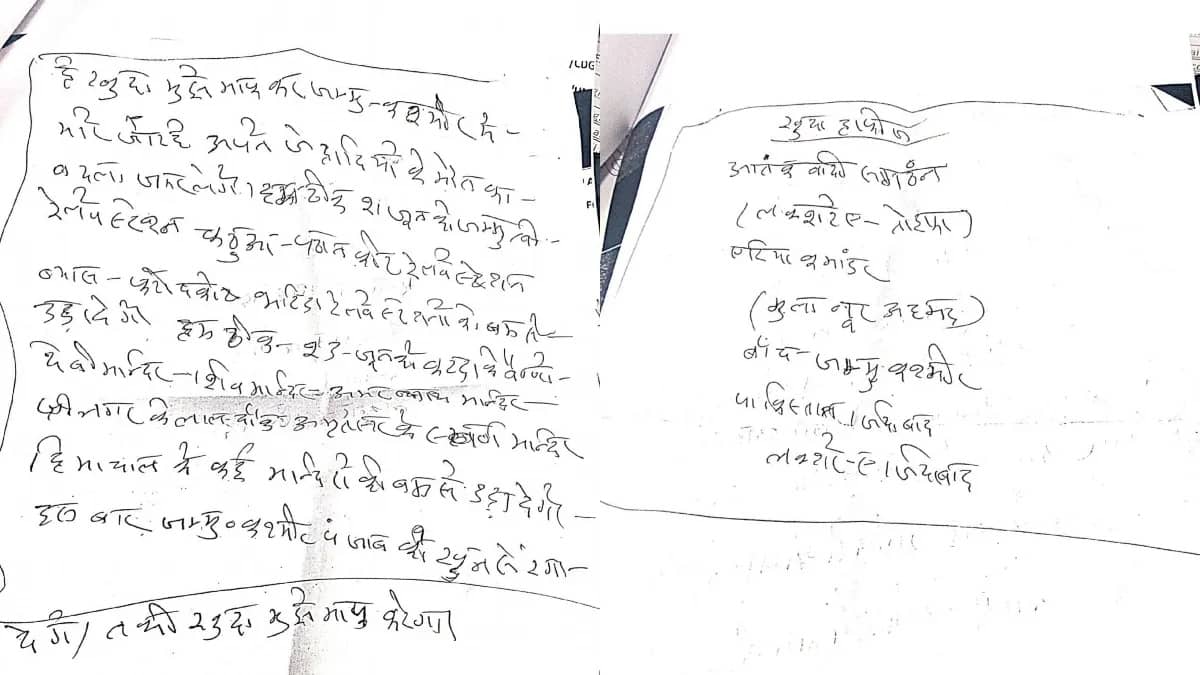 है खुदा मुझे माफ कर जम्मु-कश्मीर मे-
मारे जा रहे अपने जेहादियों के मौत का-
बदला जरूर लेंगे। हम ठीक जून को जम्मु
रेलवे स्टेशन कठुआ-पठानकोट रेलवे स्टेशन
ब्यास-फरीदकोट भटिंडा रेलवे स्टेशनों को बम से
उड़ा देगें हम ठीक- जून को कटरा के वैष्णो-
देवी मान्दिर-शिव मान्दिर-अमरनाथ मान्दिर-
श्रीनगर के लाल चौक अमृतसर के स्वर्ण मान्दिर
हिमाचल के कई मान्दिरों को बम से उड़ा देगें-
इस बार जम्मु०कश्मीर पंजाब को खुन से रंगा-
देगें। तभी खुदा मुझे माफ करेगा।
/LUG
खुदा हाफीज
आतंकवादी संगठन
(लश्करे-ए-तोईफा)
एरिया कमांडर
(मुला नूर अहमद)
जम्मु कश्मीर
पाकिस्तान जिंदाबाद
लश्करे-ए जिंदाबाद